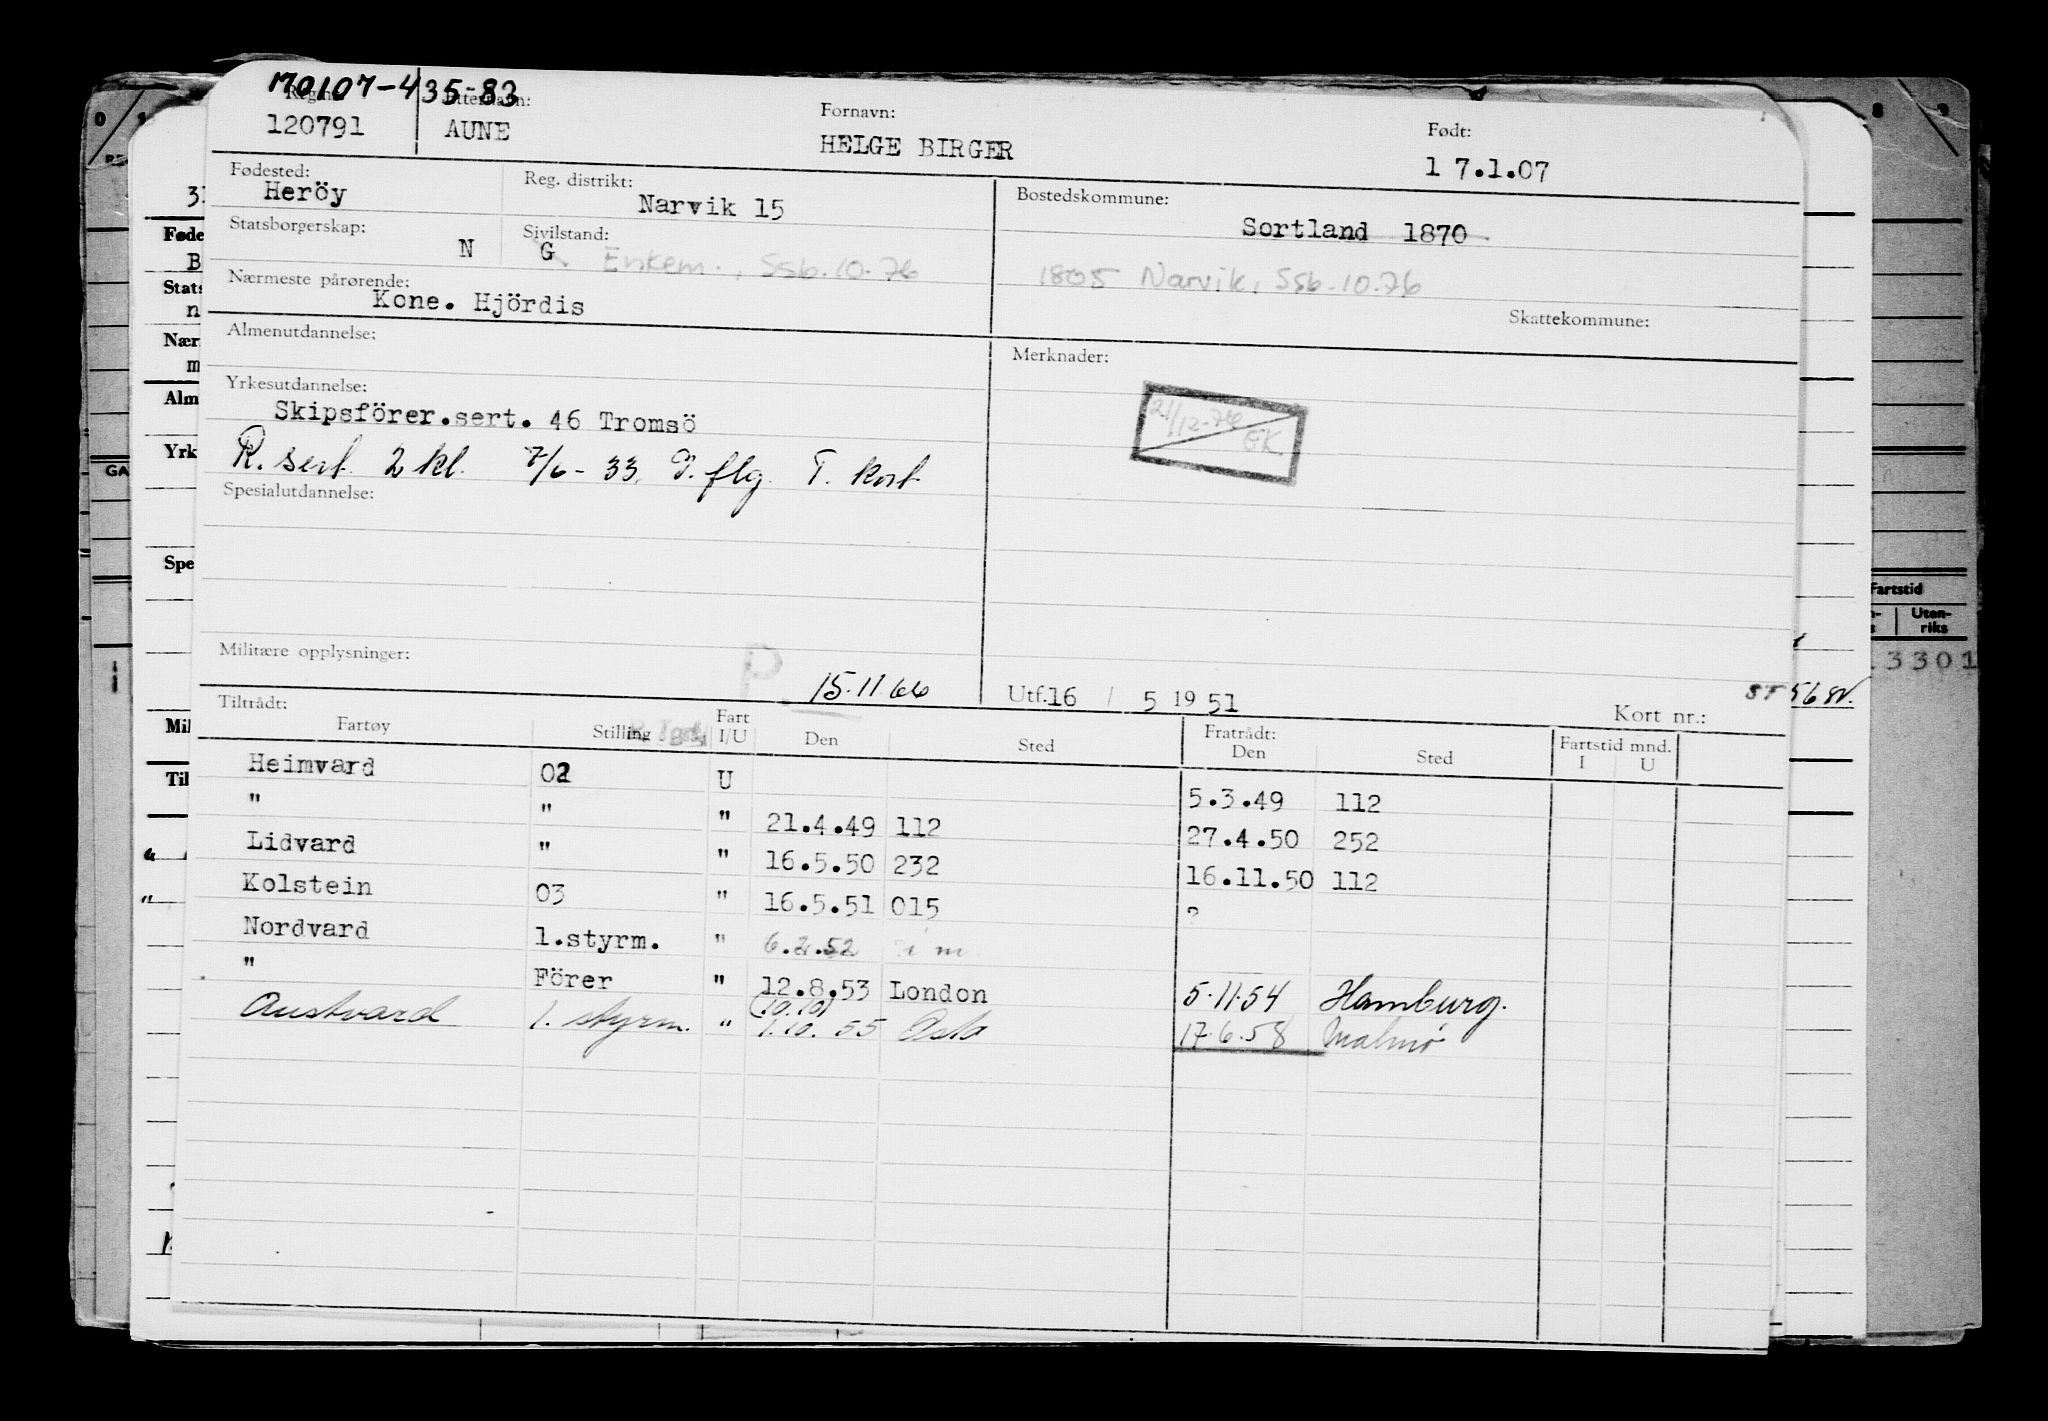 170107-435-83
Reg.nr. Etternavn: Fornavn: Født:
120791 AUNE HELGE BIRGER 17.1.07
Fødested: Reg. distrikt: Bostedskommune:
Heröy Narvik 15 Sortland 1870
Statsborgerskap: N Sivilstand: G Enkem., Ssb.10.76
1805 Narvik, Ssb.10.76
Nærmeste pårørende: Skattekommune:
Kone. Hjördis
Almenutdannelse: Merknader:
Yrkesutdannelse: 21/12-76 GK
Skipsförer.sert. 46 Tromsö
R. sert. 2 kl. 7/6-33. I. flg. T. kort
Spesialutdannelse:
Militære opplysninger: P. 15.11.66 Utf. 16 / 5 1951 Kort nr.:
Tiltrådt: Fratrådt: Fartstid mnd.
Fartøy Stilling Fart I/U Den Sted Den Sted I U
Heimvard 02 U 5.3.49 112
" " " 21.4.49 112 27.4.50 252
Lidvard " " 16.5.50 232 16.11.50 112
Kolstein 03 " 16.5.51 015 ?
Nordvard 1.styrm. " 6.2.52
" Förer " 12.8.53 London 5.11.54 Hamburg.
(10.10)
Austvard 1. styrm. " 1.10.55 Oslo 17.6.58 Malmö
Føde
B
Stats
n
Nær
m
Alm
Yrk
Spe
Mil
Til
GA
0
8 9
Fartstid
Uten-
riks
3301